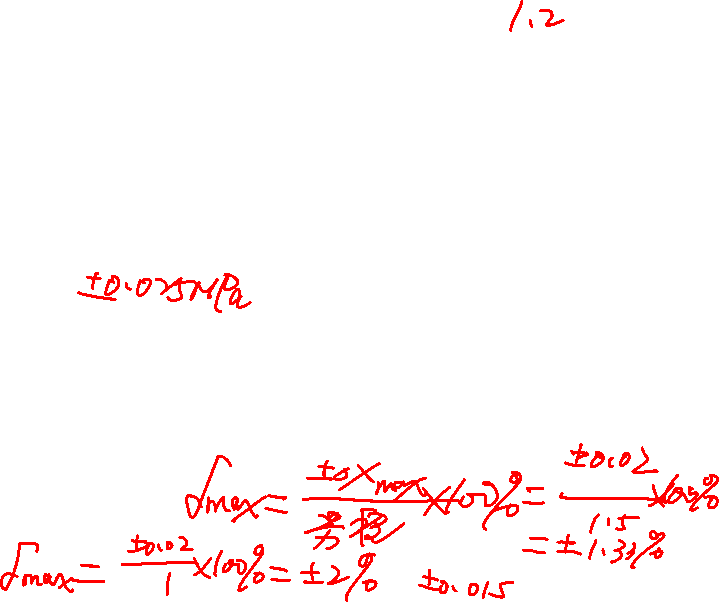 1.2
±0.025MPa
δmax = ±ΔXmax/量程 ×100% = ±0.02/1.5 ×100%
= ±1.33%
δmax = ±0.02/1 ×100% = ±2% ±0.015